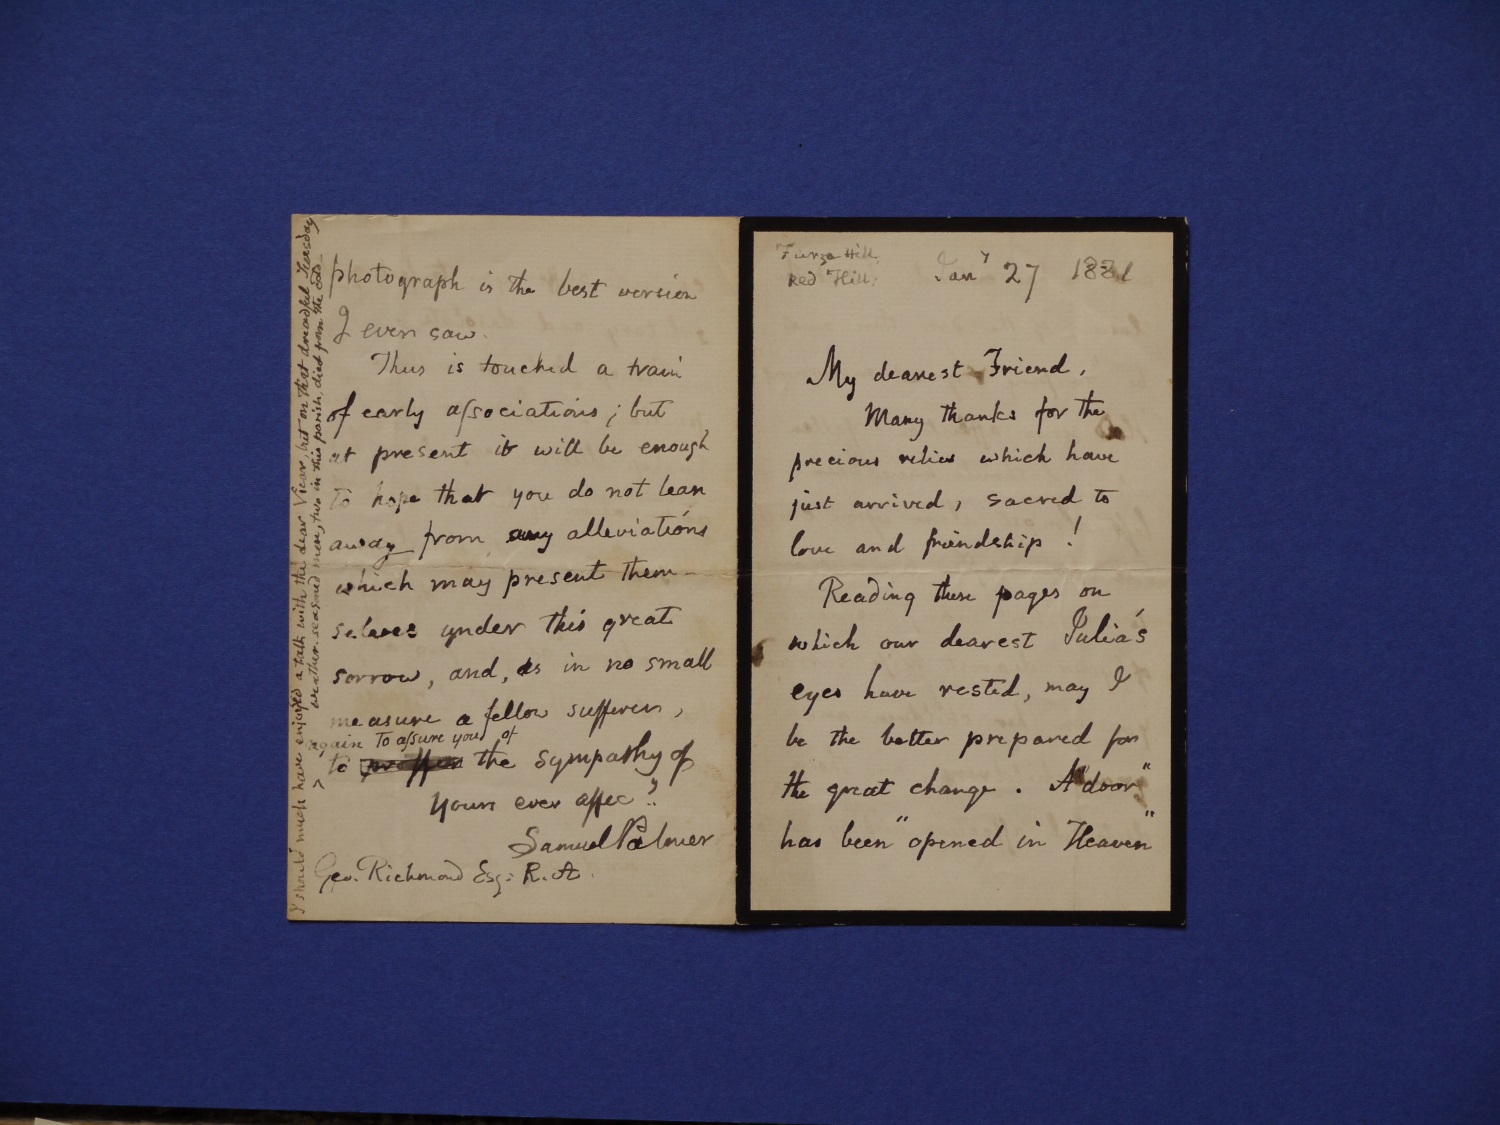 Furze Hill,
Red Hill;
Jany 27 1881
My dearest Friend,
Many thanks for the
precious relics which have
just arrived, sacred to
love and friendship!
Reading these pages on
which our dearest Julia's
eyes have rested, may I
be the better prepared for
the great change. A "door"
has been "opened in Heaven"
photograph is the best version
I ever saw.
Thus is touched a train
of early associations; but
at present it will be enough
to hope that you do not lean
away from any alleviations
which may present them-
selves under this great
sorrow, and, as in no small
measure a fellow sufferer,
again to assure you of
to the sympathy of
Yours ever affec.
Samuel Palmer
Geo. Richmond Esq: R.A.
I should much have enjoyed a talk with the dear Vicar, but on that dreadful Tuesday
weather-seasoned men, two in this parish, died from the cold